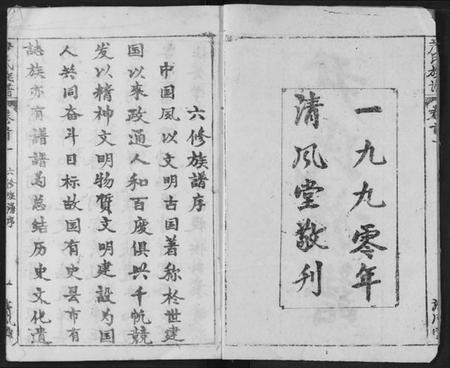 一九九零年
清风堂敬刊
六修族谱序
中国夙以文明古国著称于世建
国以来政通人和百废俱兴千帆竞
发以精神文明物质文明建设为国
人共同奋斗目标故国有史县市有
誌族亦有谱谱为总结历史文化遗
六修族谱序